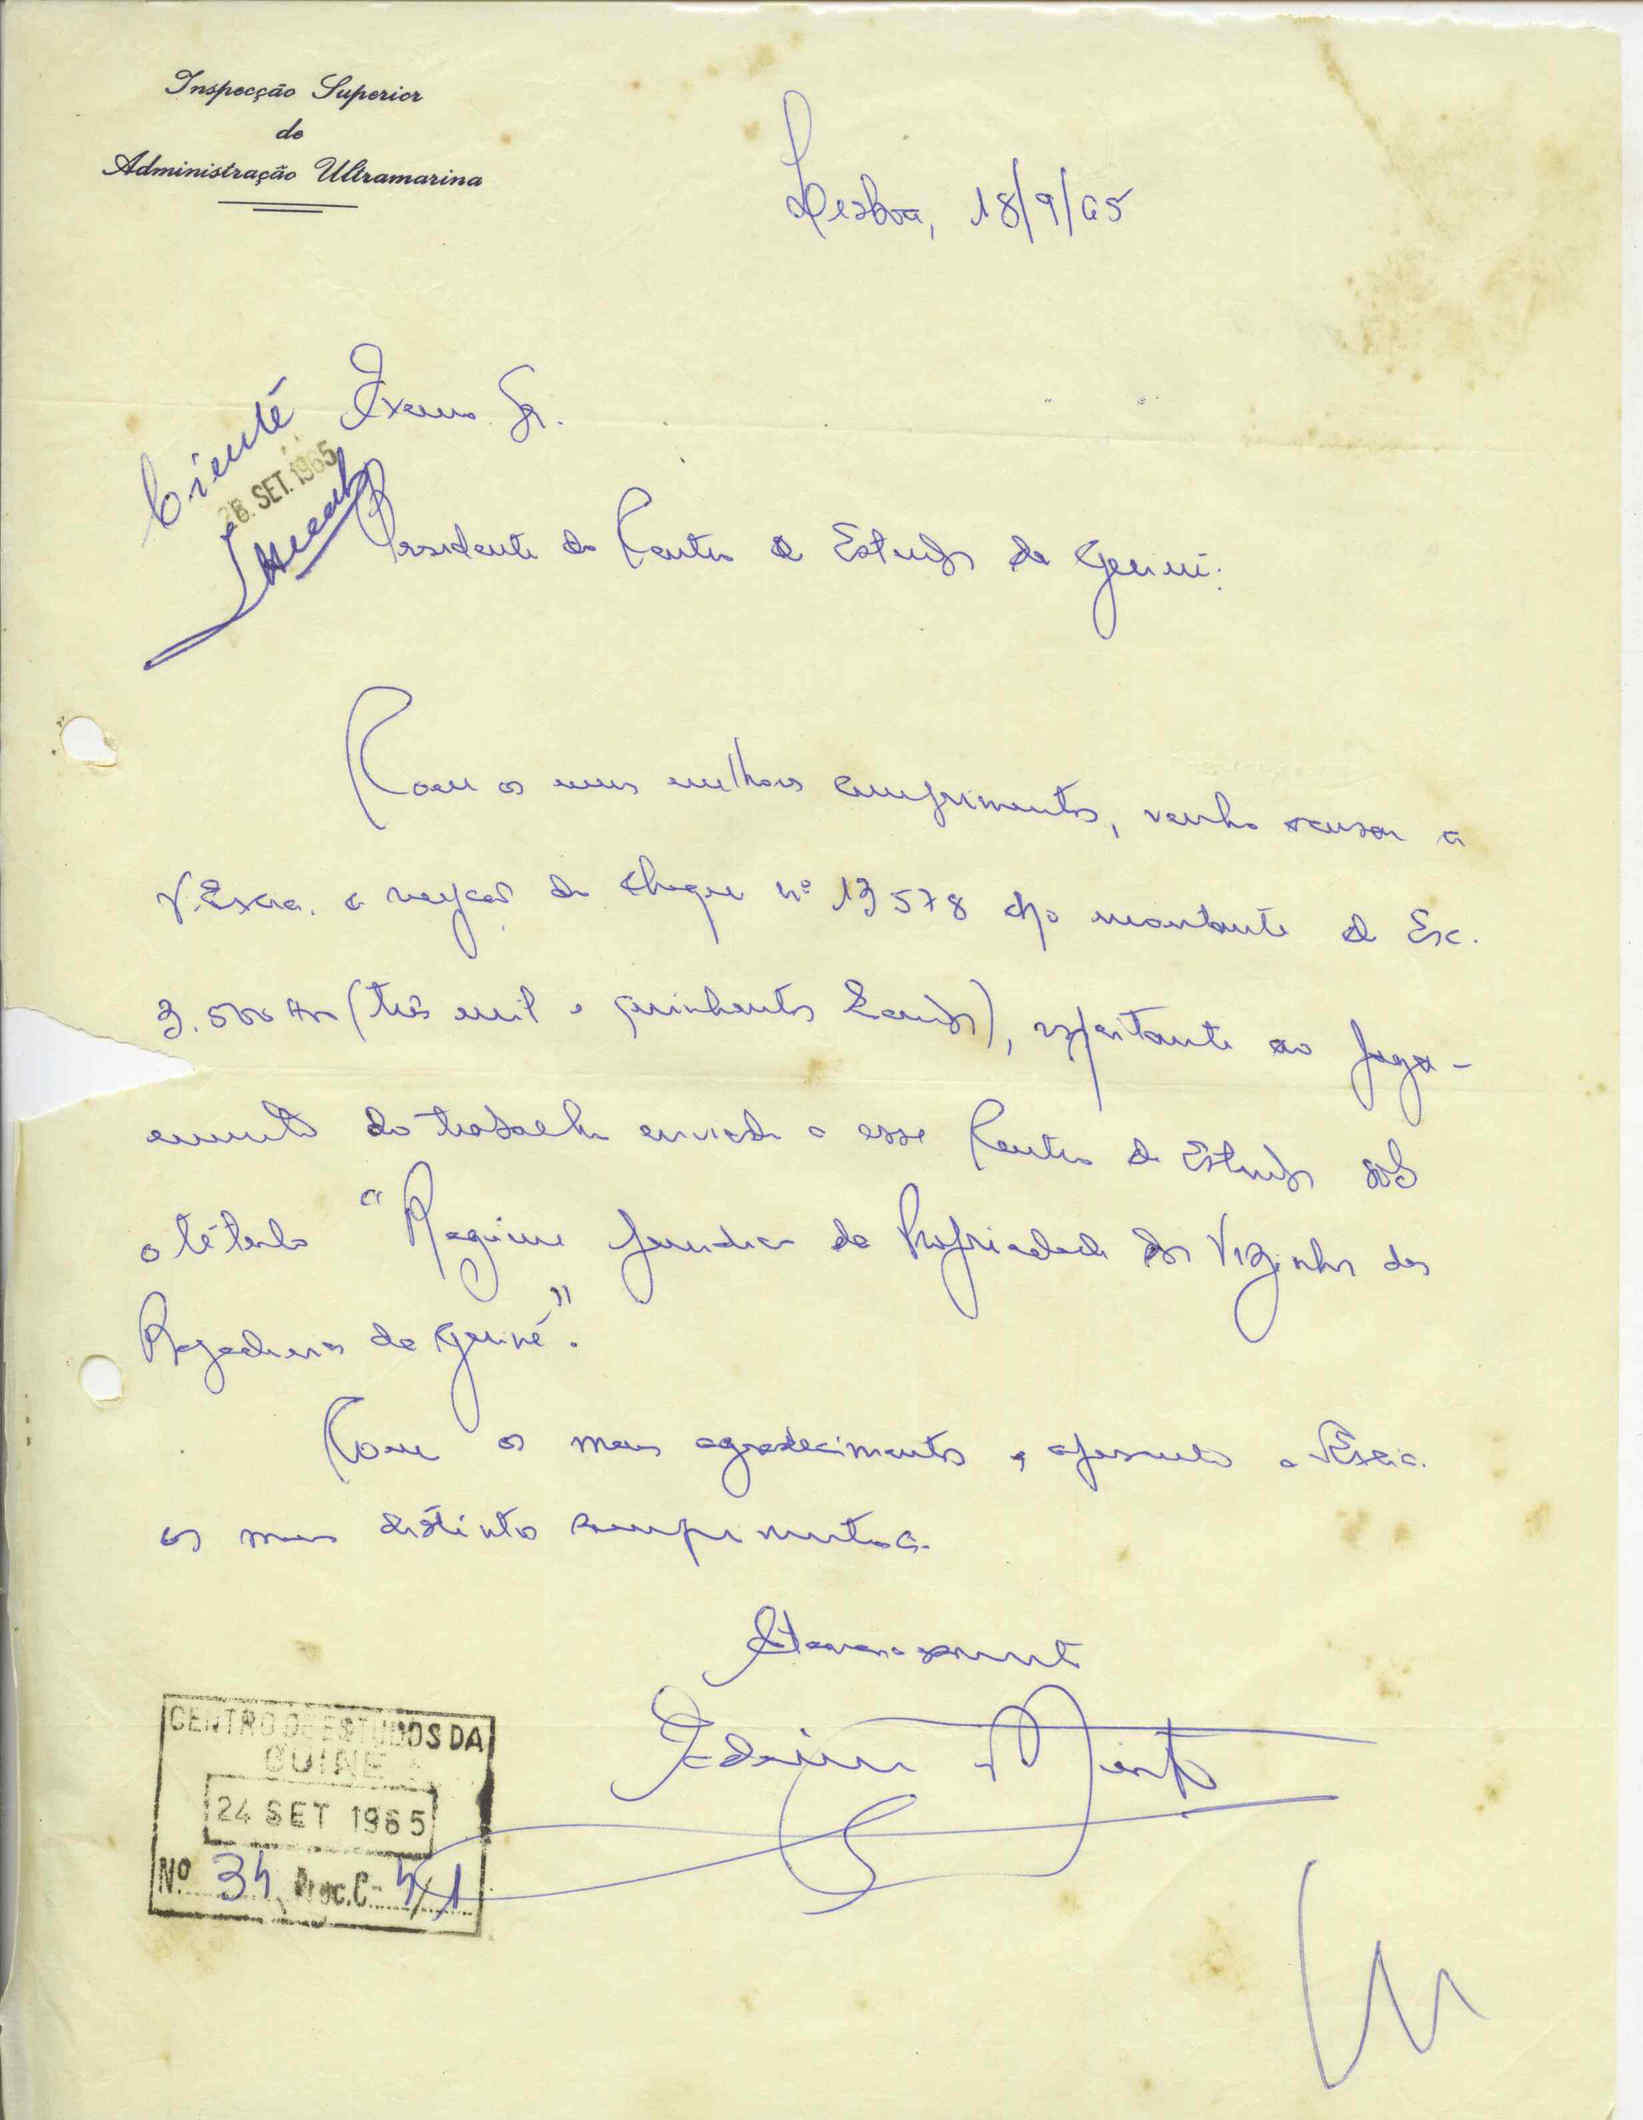 Inspecção Superior
de
Administração Ultramarina
Lisboa, 18/9/65
Ciente
28. SET. 1965
Exmo. Sr.
Presidente do Centro de Estudos da Guiné:
Com os meus melhores cumprimentos, venho acusar a
V. Excia. a recepção do cheque nº 13578 do montante de Esc.
3.500$00 (três mil e quinhentos Escudos), respeitante ao paga-
mento do trabalho enviado a esse Centro de Estudos sob
o título "Regime Jurídico da Propriedade dos Vizinhos das
Regedorias da Guiné".
Com os meus agradecimentos, apresento a V. Excia.
os meus distintos cumprimentos.
Atenciosamente
CENTRO DE ESTUDOS DA
GUINÉ
24 SET 1965
Nº 34 Proc. C- 4/1